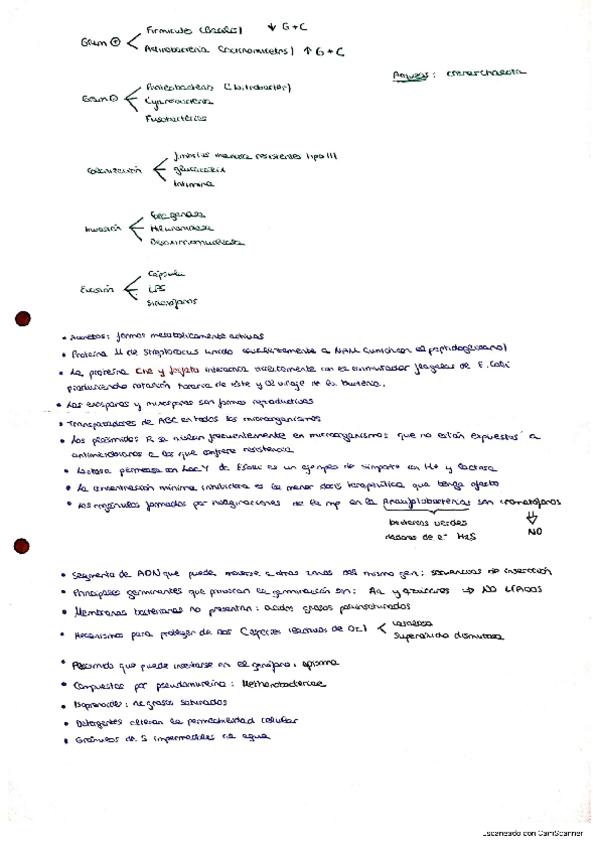 Gram ⊕ Firmicutes (Bacilos) ↓ G+C
Actinobacteria (Actinomicetos) ↑ G+C
Arqueas: Crenarchaeota
Gram ⊖ Proteobacterias
Cyanobacteria
Fusobacterias
Colonización fimbrias manosa resistentes tipo III
Intimina
Invasión
Evasión Cápsula
LPS
Sideróforos
• formas metabólicamente activas
• Proteína M de Streptococcus unido covalentemente a NAM (unión con el peptidoglicano)
• La proteína Che y fosfato interacciona directamente con el conmutador flagelar de E. Coli
produciendo rotación horaria de este y el viraje de la bacteria.
• Las exosporas y mixosporas son formas reproductivas
• Transportadores de ABC en todos los microorganismos
• Los plásmidos R se aíslan frecuentemente en microorganismos que no están expuestos a
antimicrobianos a los que confiere resistencia
• Lactosa permeasa con Lac Y de E. coli es un ejemplo de simporte con H+ y lactosa
• La concentración mínima inhibidora es la menor dosis terapéutica que tenga efecto
• Los orgánulos formados por invaginaciones de la mp en la son cromatóforos
bacterias verdes NO
dadores de e⁻ H2S
• Segmento de ADN que puede moverse a otras zonas del mismo gen: secuencias de inserción
• Principales germinantes que provocan la germinación son: Aa y azúcares → NO LÍPIDOS
• Membranas bacterianas no presentan: ácidos grasos poliinsaturados
• Mecanismos para proteger de las (especies reactivas de O2) catalasa
Superóxido dismutasa
• Plásmido que puede insertarse en el genóforo: episoma
• Compuestas por pseudomureína: Methanobacteriae
• Isoprenoides: no grasos saturados
• Detergentes alteran la permeabilidad celular
• Gránulos de S impermeables al agua
Escaneado con CamScanner